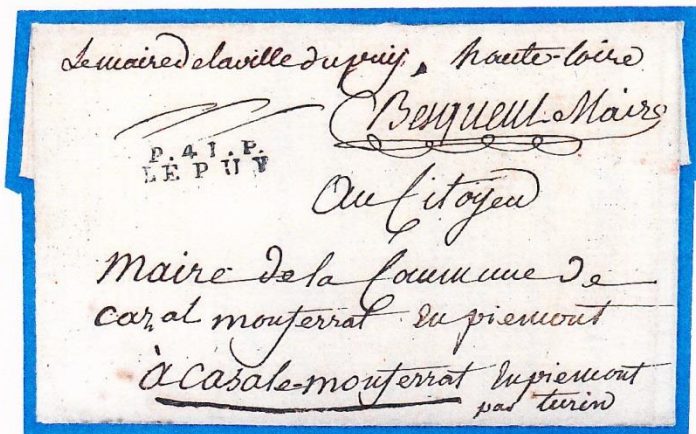 Le maire de la ville du puy, haute-loire
Besqueut Maire
P. 41. P.
LE PUY
Au Citoyen
Maire de la Commune de
cazal monferrat en piemont
à Casale-monferrat en piemont
par turin